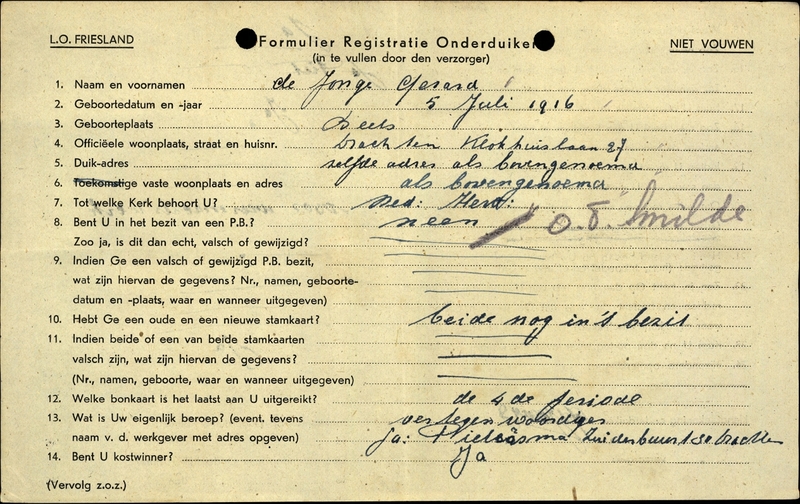 L.O. FRIESLAND
Formulier Registratie Onderduiker
(in te vullen door den verzorger)
NIET VOUWEN
1. Naam en voornamen de Jonge Gerard
2. Geboortedatum en -jaar 5 Juli 1916
3. Geboorteplaats Beets
4. Officiëele woonplaats, straat en huisnr. Drachten Klokhuislaan 27
5. Duik-adres zelfde adres als bovengenoemd
6. Toekomstige vaste woonplaats en adres als bovengenoemd
7. Tot welke Kerk behoort U? Ned: Herv:
8. Bent U in het bezit van een P.B.? neen O.D. Smilde
Zoo ja, is dit dan echt, valsch of gewijzigd?
9. Indien Ge een valsch of gewijzigd P.B. bezit,
wat zijn hiervan de gegevens? Nr., namen, geboorte-
datum en -plaats, waar en wanneer uitgegeven)
10. Hebt Ge een oude en een nieuwe stamkaart? beide nog in 't bezit
11. Indien beide of een van beide stamkaarten
valsch zijn, wat zijn hiervan de gegevens?
(Nr., namen, geboorte, waar en wanneer uitgegeven)
12. Welke bonkaart is het laatst aan U uitgereikt? de 4de periode
13. Wat is Uw eigenlijk beroep? (event. tevens vertegenwoordiger
naam v. d. werkgever met adres opgeven) fa: Zuiderbuurt Drachten
14. Bent U kostwinner? Ja
(Vervolg z.o.z.)